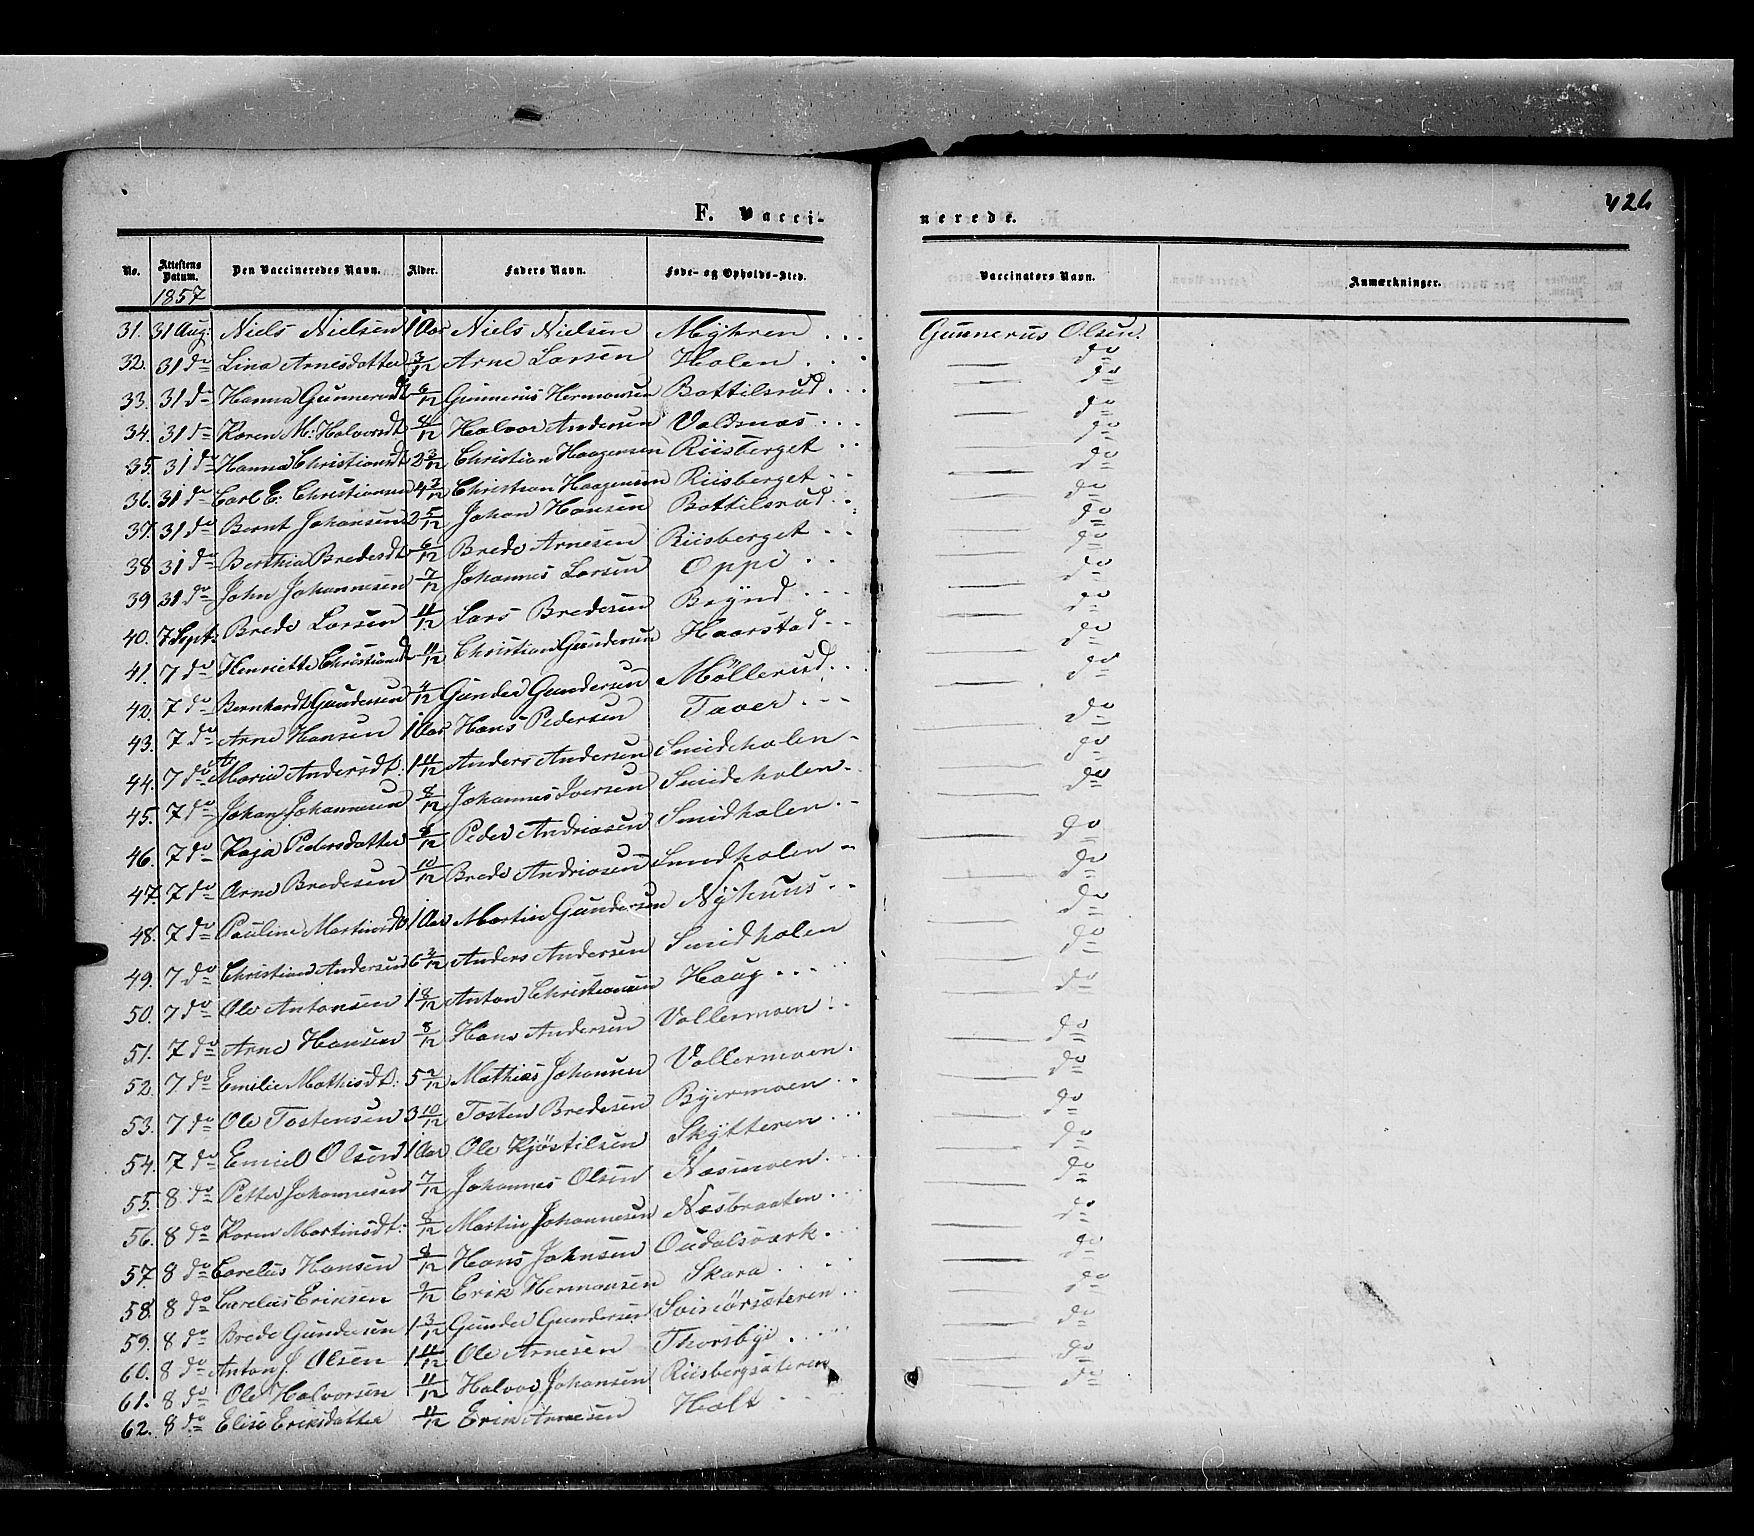 426
F. Vaccinerede.
No. Attestens Datum. Den Vaccineredes Navn. Alder. Faders Navn. Føde- og Opholds-Sted. Vaccinators Navn. Anmærkninger.
1857
31. 31 Aug: Niels Nielsen 1 Aar Niels Nielsen Myhren ... Gunnerus Olsen.
32. 31 do Lina Arnesdatter 3/12 Arne Larsen Holen . . — do
33. 31 do Hanna Gunnerusdt 6/12 Gunnerius Hermansen Bottilsrud . . . — do
34. 31 do Karen M: Halvorsdt 4/12 Halvor Andersen Valdsnæs . . . — do
35. 31 do Hanna Christiansdt 2 3/12 Christian Haagensen Riisberget . . — do
36. 31 do Carl E. Christiansen 4 3/12 Christian Haagensen Riisberget . . — do
37. 31 do Bernt Johansen 2 5/12 Johan Hansen Bottilsrud . . — do
38 31 do Berthia Bredesdt 6/12 Brede Arnesen Riisberget . . — do
39 31 do John Johannesen 7/12 Johannes Larsen Oppi . . — do
40. 7 Sept: Brede Larsen 11/12 Lars Bredesen Brynd . . . — do
41. 7 do Henriette Christiansdt 11/12 Christian Gundersen Haarstad . . — do
42. 7 do Bernhardt Gundersen 4/12 Gunder Gundersen Möllerud . . . — do
43. 7 do Arne Hansen 1 Aar Hans Pedersen Taver . . . — do
44. 7 do Marie Andersdt: 1 11/12 Anders Andersen Smidholen — do
45. 7 do Johan Johannesen 8/12 Johannes Iversen Smidholen — do
46. 7 do Kaja Pedersdatter 8/12 Peder Andriasen Smidholen . . — do
47. 7 do Arne Bredesen 10/12 Brede Andriasen Smidholen — do
48. 7 do Pauline Martinsdt 1 Aar Martin Gundersen Nyhuus . . — do
49. 7 do Christian Andersen 6 3/12 Anders Andersen Smidholen — do
50. 7 do Ole Antonsen 1 8/12 Anton Christiansen Haug . . . — do
51. 7 do Arne Hansen 8/12 Hans Andersen Vollermoen . . — do
52. 7 do Emilie Mathisdt: 5 2/12 Mathias Johannsen Vollermoen . — do
53. 7 do Ole Tostensen 3 10/12 Tosten Bredesen Byermoen . . — do
54. 7 do Emiel Olsen 1 Aar Ole Kjöstilsen Skytteren . . . — do
55. 8 do Petter Johannesen 7/12 Johannes Olsen Næsmoen . . . — do
56. 8 do Karen Martinsdt: 8/12 Martin Johannesen Næsbraaten . . . — do
57. 8 do Carelius Hansen 8/12 Hans Johnsen Oudalsværk . . — do
58. 8 do Carelius Eriksen 9/12 Erik Hermansen Skara . . . — do
59. 8 do Brede Gundersen 1 3/12 Gunder Gundersen . . — do
60. 8 do Anton J. Olsen 1 11/12 Ole Arnesen Thorsbye . . . — do
61. 8 do Ole Halvorsen 11/12 Halvor Johansen Riisbergsæteren — do
62. 8 do Elise Eriksdatter 11/12 Erik Arnesen Holt . . — do